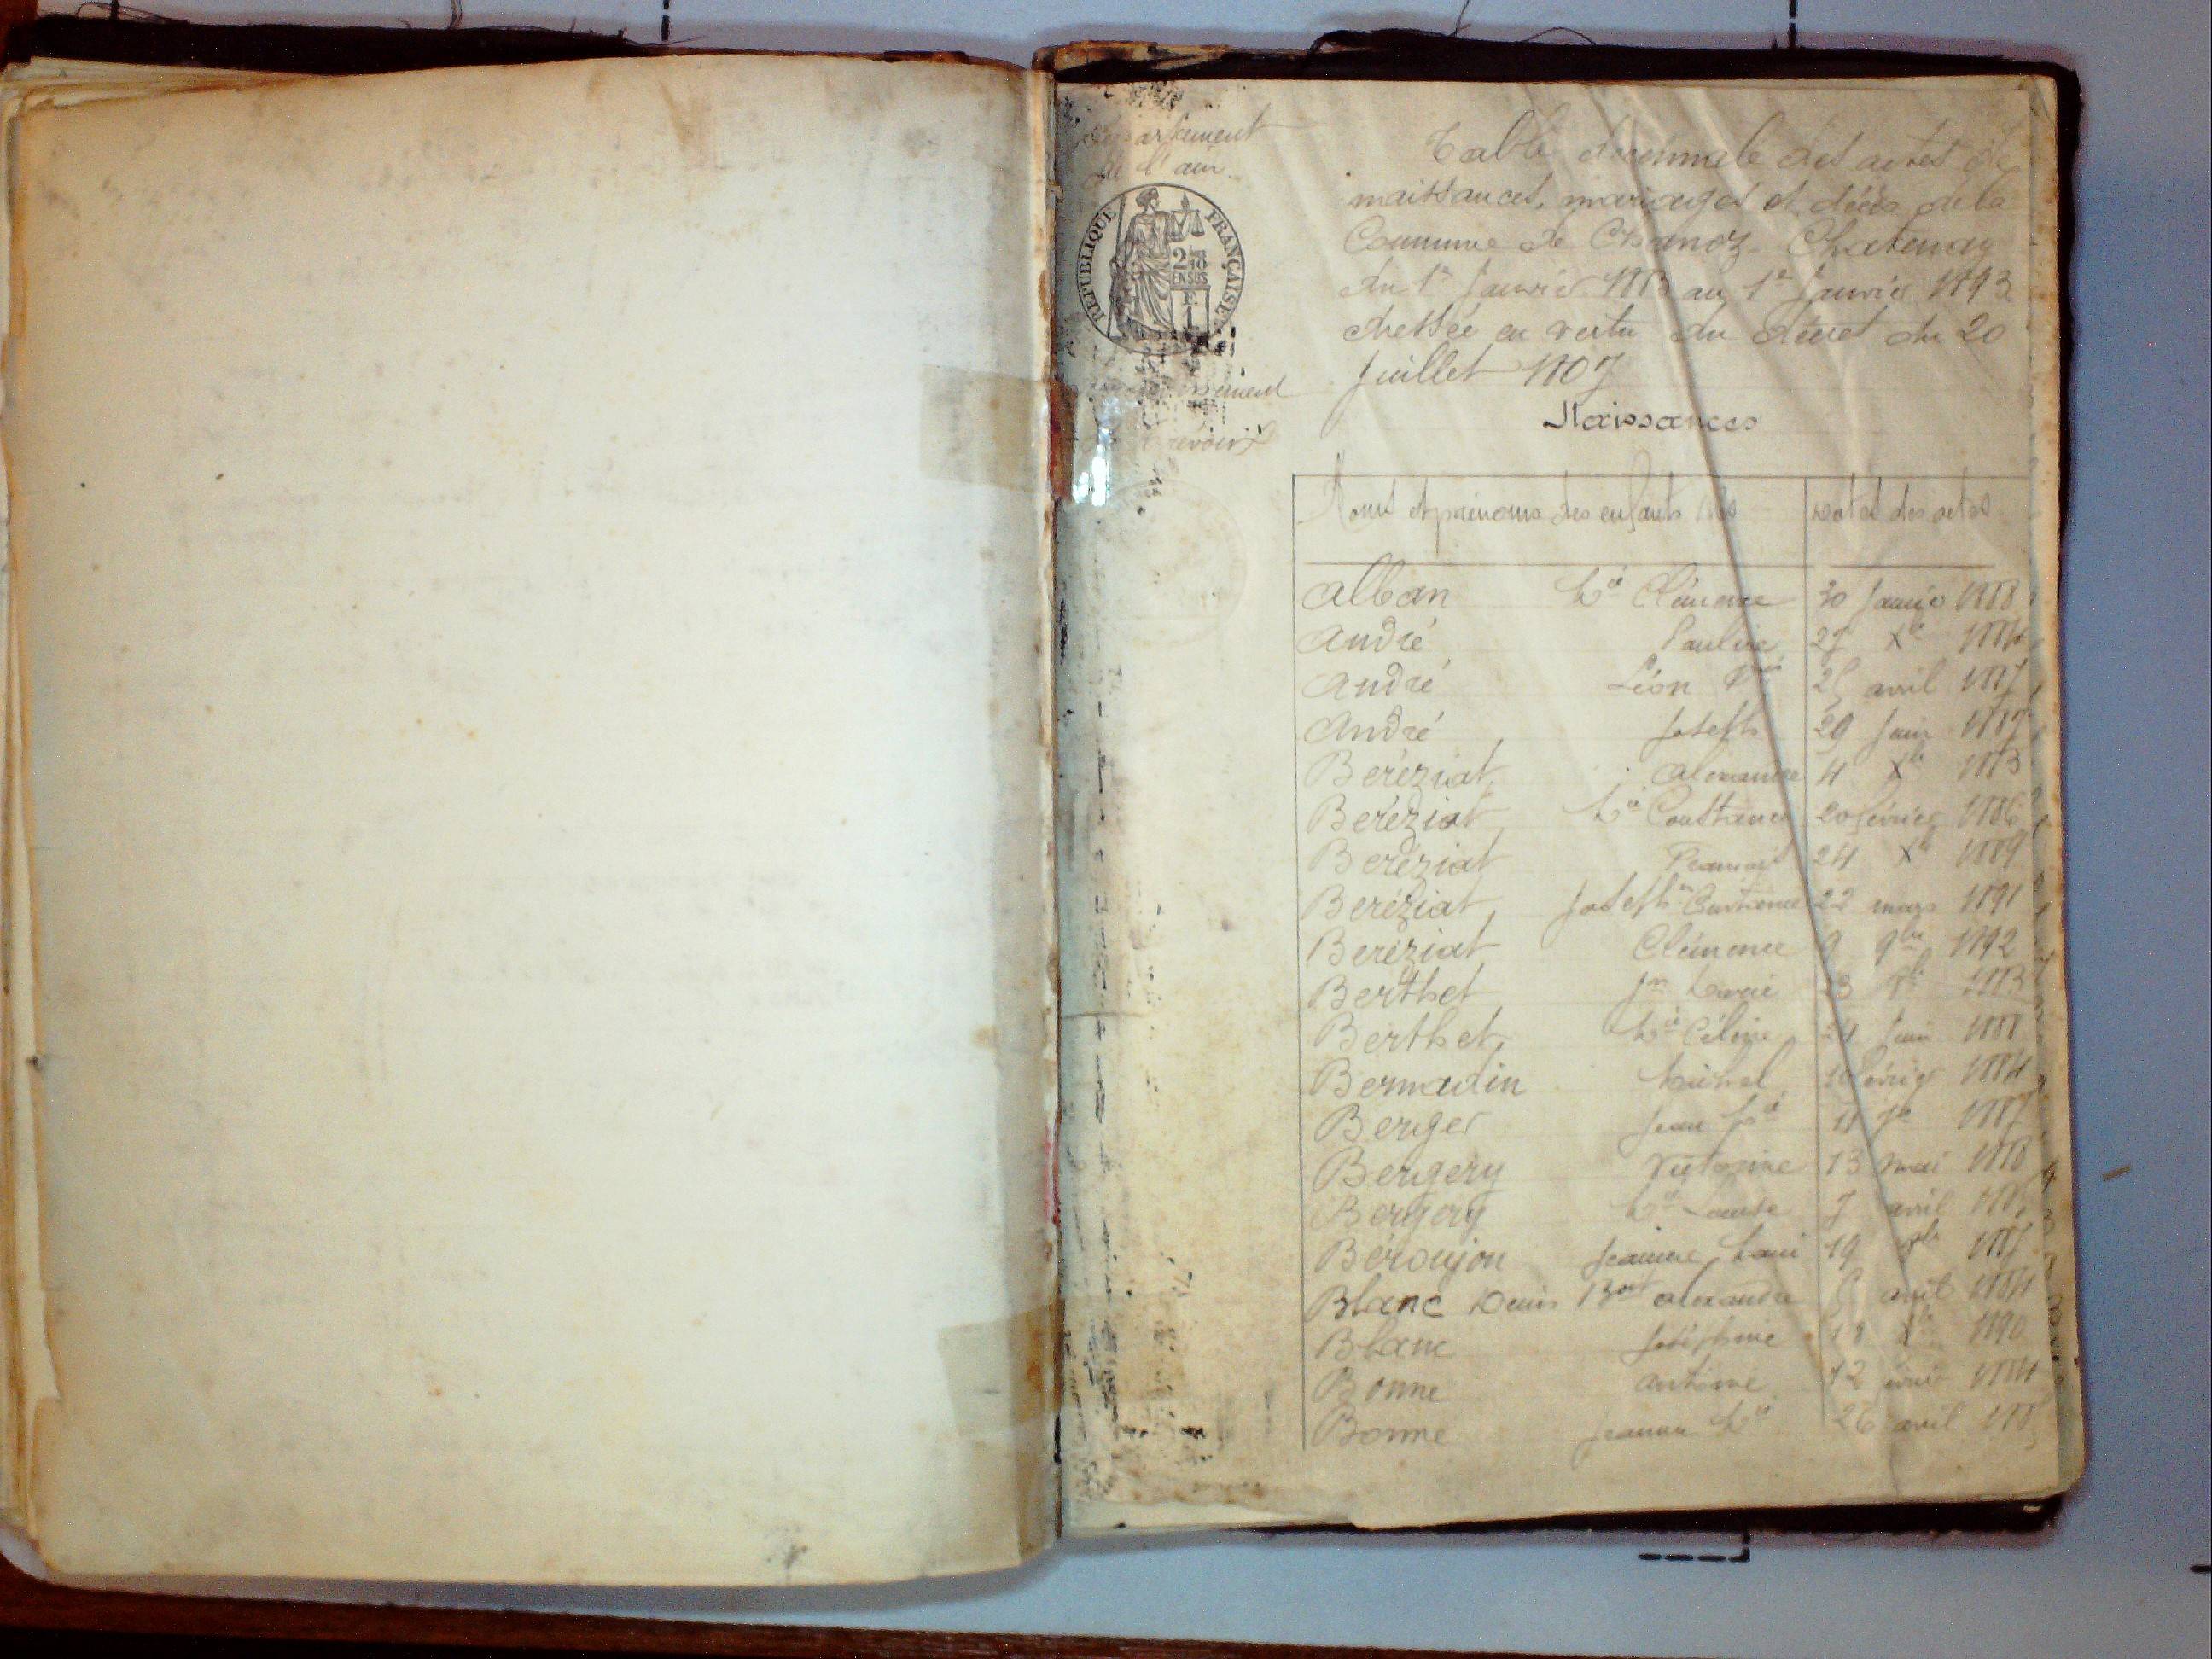 Département
de l'ain
RÉPUBLIQUE FRANÇAISE
Table décennale des actes de
naissances, mariages et décès de la
Commune de Chanoz-Chatenay
du 1er Janvier 1883 au 1er Janvier 1893
dressée en vertu du décret du 20
Juillet 1807
Naissances
Noms et prénoms des enfants dates des actes
Alban Mie Clémence 30 Janvier 1888
André Pauline 27 Xbre
André Léon avril 1887
André Joseph 29 Juin
Beréziat Alexandre 4 Xbre 1883
Beréziat Mie Constance 20 février 1886
Beréziat 24 Xbre 1889
Beréziat Joseph 22 mars 1891
Beréziat Clémence 9 9bre 1892
Berthet Jn Marie 23 1883
Berthet Mie Céline 24 Juin 1888
Bernadin Michel février 1884
Berger Jean 1887
Bergery Victorine 13 mai 1888
Bergery Mie Louise 7 avril
Béroujon Jeanne Marie 19
Blanc Denis Alexandre 1884
Blanc Joséphine 18 Xbre 1890
Bonne Antoine 12 1884
Bonne Jeanne Mie 26 avril